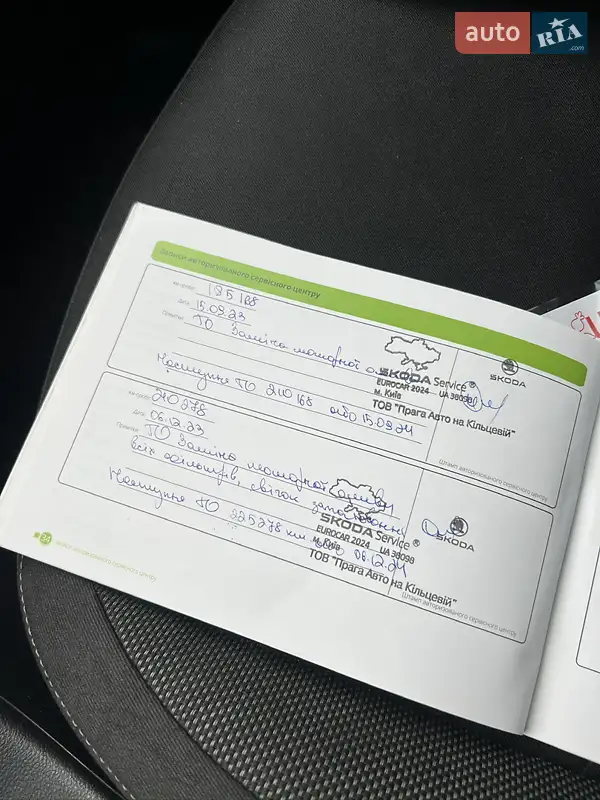 auto RIA.com
Звонки авторизованого сервісного центру
195 168
Дата: 15.09.23
Примітки: ТО Заміна моторної
Наступне ТО 210 168 або 15.09.24
SKODA Service®
EUROCAR 2024 UA 38098
м. Київ
ТОВ "Прага Авто на Кільцевій"
SKODA
Штамп авторизованого сервісного центру
210 278
Дата: 06.12.23
Примітки: ТО Заміна моторної оливи
всіх фільтрів, свічок запалювання
Наступне ТО 225278 км або 06.12.24
SKODA Service®
EUROCAR 2024 UA 38098
м. Київ
ТОВ "Прага Авто на Кільцевій"
SKODA
Штамп авторизованого сервісного центру